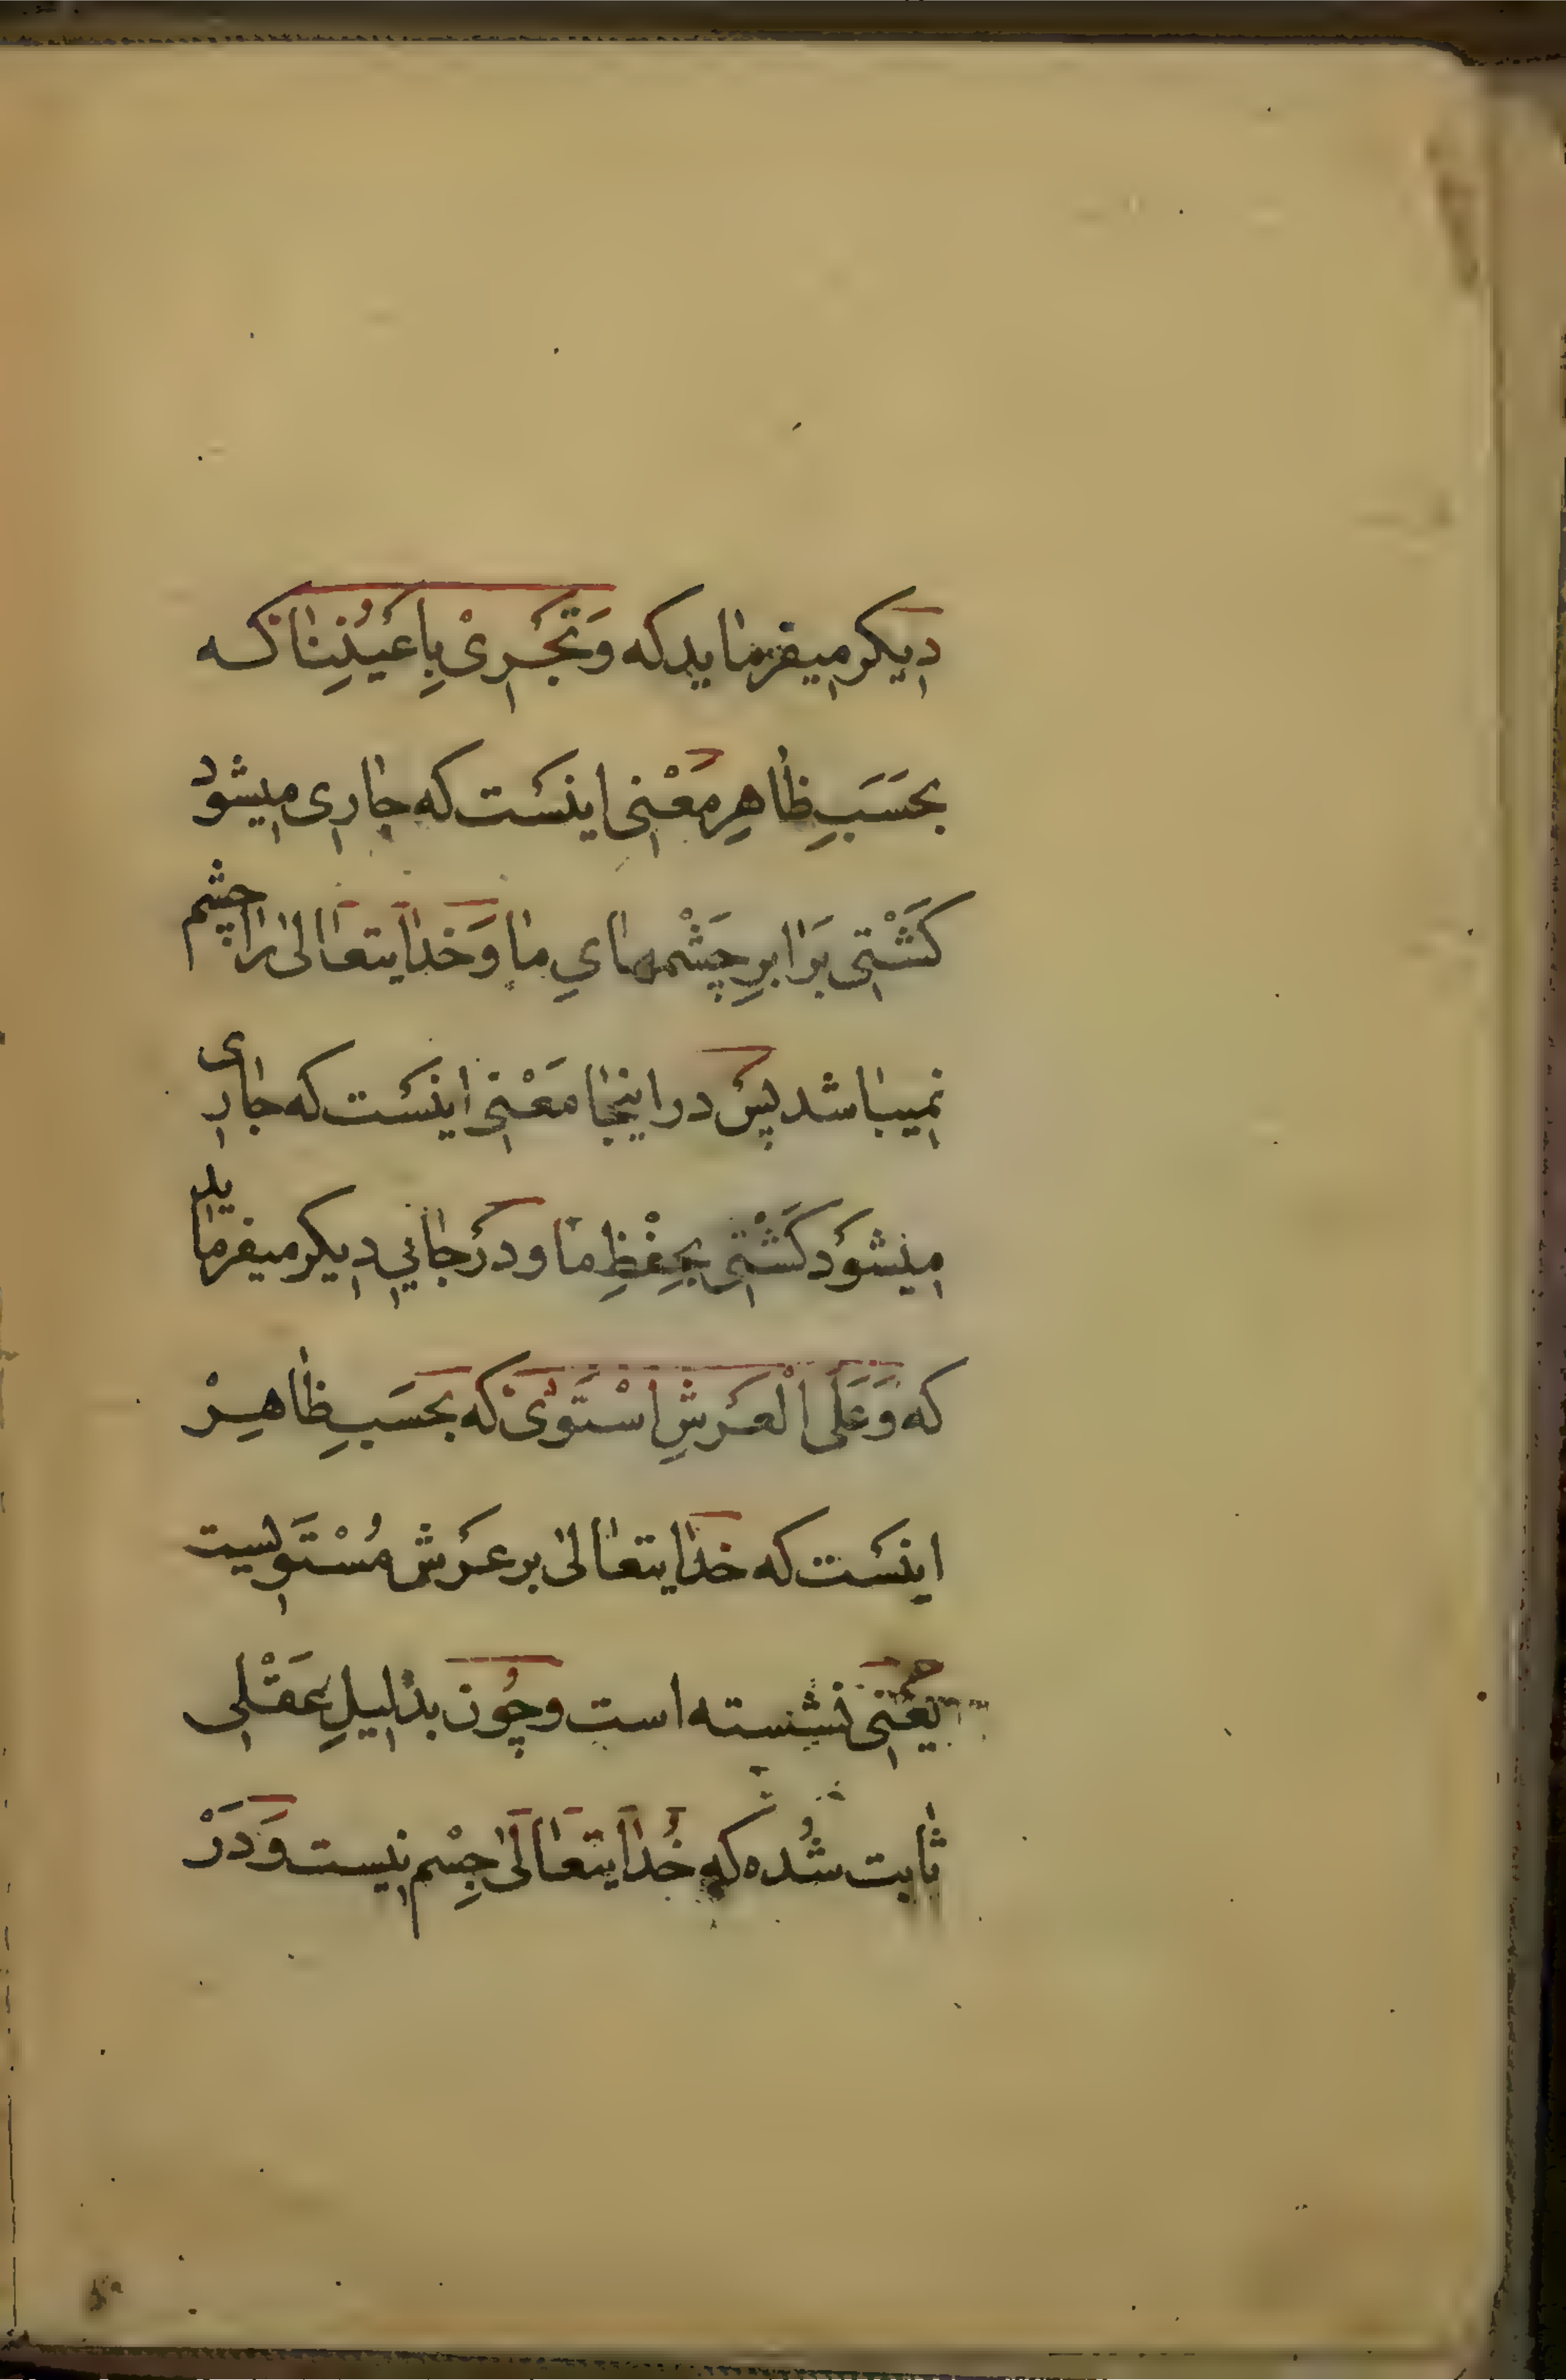 دیکر میفرماید که وَتَجْرِیْ بِاَعْیُنِنَا که
بحَسَبِ ظاهِرِ مَعْنی اینَست که جاری میشود
کَشْتی بَرابرِ چَشْمهایِ ما وَ خدایتعالی را چشم
نمیباشد پس در اینجا مَعْنی اینَست که جاری
میشوَد کَشْتی بحِفْظِ ما و دَر جائی دیکر میفرماید
که وَعَلَی الْعَرشِ اسْتَوٰیْ که بحَسَبِ ظاهِرْ
اینَست که خدایتعالی بر عَرش مُسْتَویست
یَعْنی نشسته است و چُون بدَلیلِ عَقْلی
ثابت شُده که خُدایتَعالیٰ جِسْم نیست وَ دَرْ